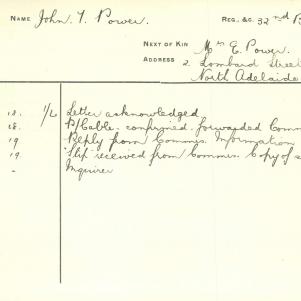 NAME John. T. Power. REG. &C. 32nd B
NEXT OF KIN Mrs E. Power.
ADDRESS 2 Lombard Street
North Adelaide
18. 1/L Letter acknowledged
18. P/Cable. confirmed. forwarded Comm
19 Reply from Commis. Information
19. Slip received from Commis. Copy of
- Inquirer